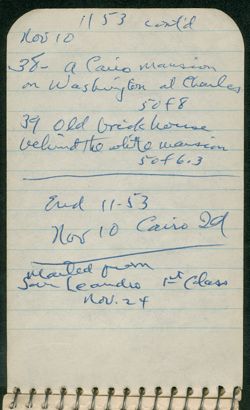 11 53 cont'd
Nov 10
38- A Cairo mansion
on Washington at Charles
50 f 8
39 Old brick house
behind the ditto mansion
50 f 6.3
End 11-53
Nov 10 Cairo 29
Mailed from
San Leandro 1st Class
Nov. 24